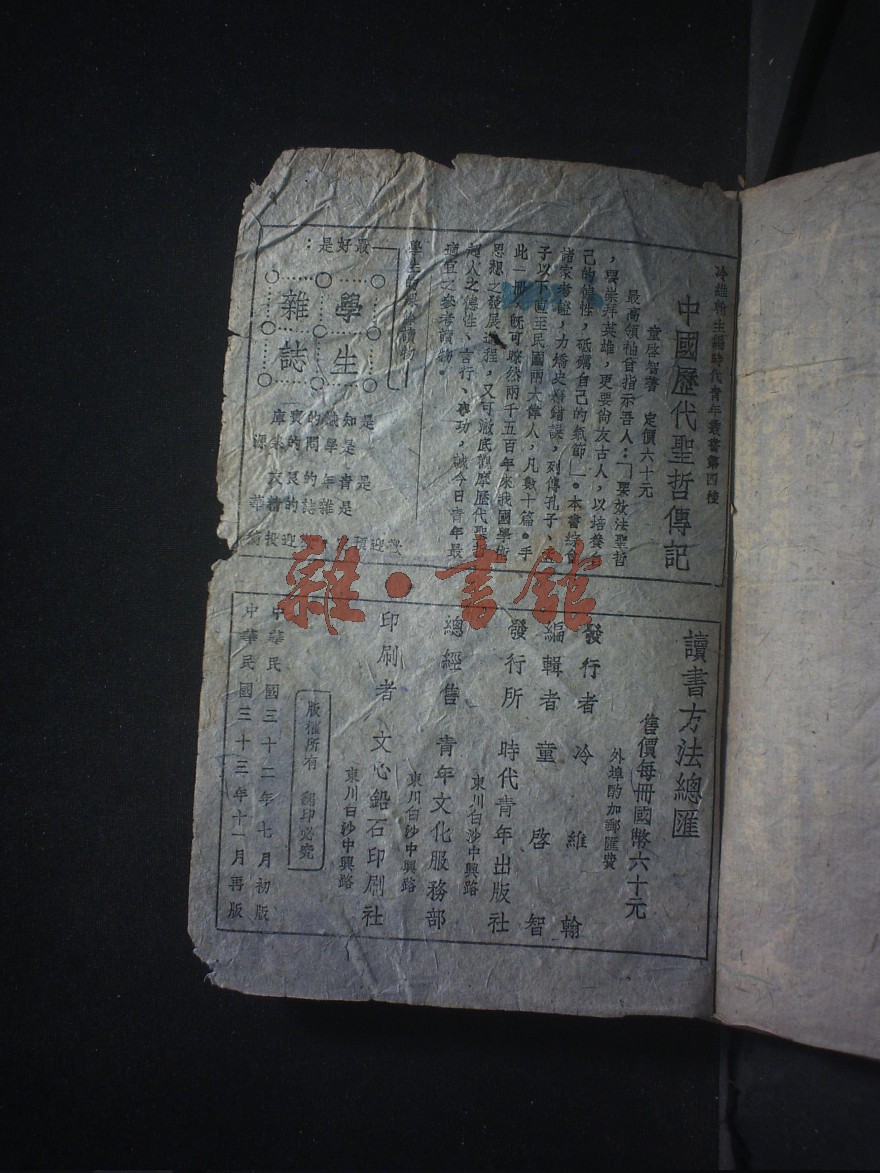 冷維翰主編時代青年叢書第四種
中國歷代聖哲傳記
童啓智著 定價六十元
最高領袖曾指示吾人：「要效法聖哲
，要崇拜英雄，更要尚友古人，以培養自
己的德性，砥礪自己的氣節」。本書綜合
諸家考證，力矯史籍錯誤，列傳孔子、孟
子以下直至民國兩大偉人，凡數十篇。手
此一冊，既可瞭然兩千五百年來我國學術
思想之發展過程，又可澈底觀摩歷代聖哲
超人之德性、言行、事功，誠今日青年最
適宜之參考讀物。
學生的興趣讀物
最好是：
學生
雜誌
是知識的寶庫
是學問的來源
是青年的良友
是雜誌的精華
歡迎預 歡迎投稿
讀書方法總匯
售價每冊國幣六十元
外埠酌加郵匯費
發行者 冷維翰
編輯者 童啓智
發行所 時代青年出版社
東川白沙中興路
總經售 青年文化服務部
東川白沙中興路
印刷者 文心鉛石印刷社
東川白沙中興路
版權所有 翻印必究
中華民國三十二年七月初版
中華民國三十三年十一月再版
雜·書館